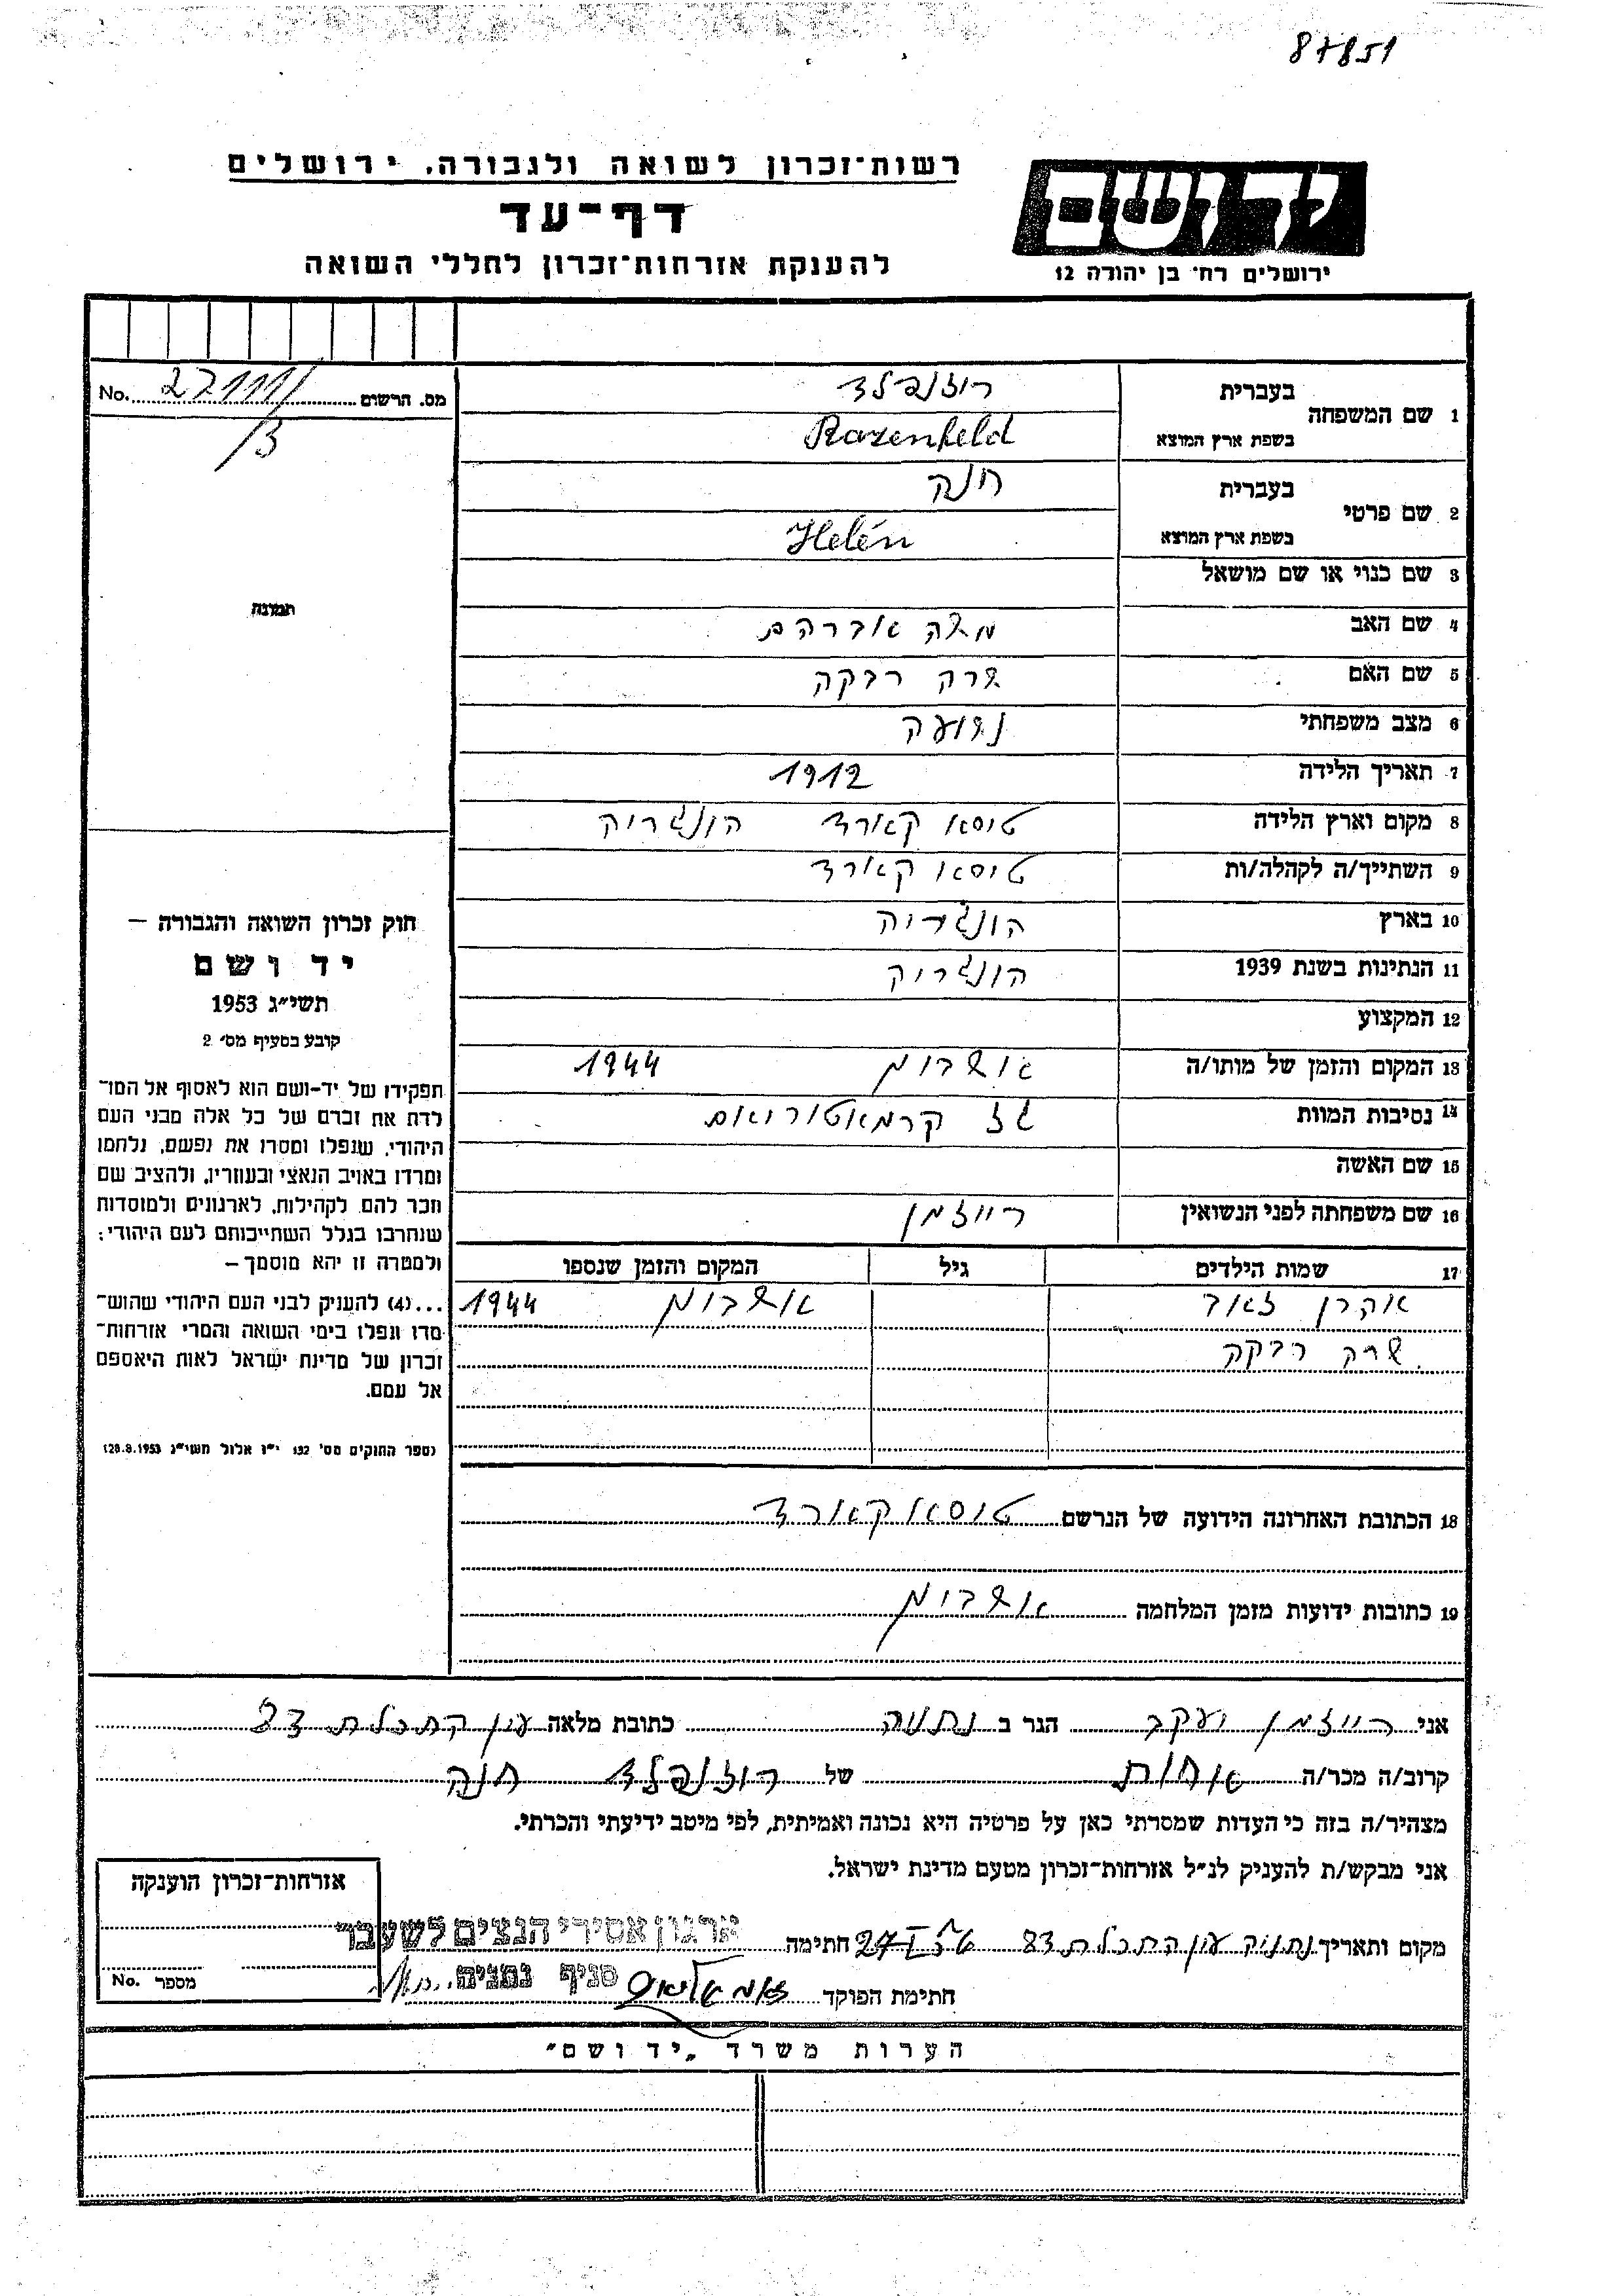 87851
רשות־זכרון לשואה ולגבורה, ירושלים
דף־עד
להענקת אזרחות־זכרון לחללי השואה
יד ושם
ירושלים רח׳ בן יהודה 12
מס. הרשום No.
1 שם המשפחה בעברית רוזנפלד
בשפת ארץ המוצא Rozenfeld
2 שם פרטי בעברית חנה
בשפת ארץ המוצא Helén
3 שם כנוי או שם מושאל
4 שם האב משה אברהם
5 שם האם שרה רבקה
6 מצב משפחתי נשועה
7 תאריך הלידה 1912
8 מקום וארץ הלידה טיסא קארד הונגריה
9 השתייך/ה לקהלה/ות טיסא קארד
10 בארץ הונגריה
11 הנתינות בשנת 1939 הונגריה
12 המקצוע
13 המקום והזמן של מותו/ה 1944
14 נסיבות המוות גז קרמאטוריאום
15 שם האשה
16 שם משפחתה לפני הנשואין רייזמן
17 שמות הילדים גיל המקום והזמן שנספו
אהרן זאב 1944
שרה רבקה
18 הכתובת האחרונה הידועה של הנרשם טוסא קארד
19 כתובות ידועות מזמן המלחמה
תמונה
חוק זכרון השואה והגבורה –
יד ושם
תשי״ג 1953
קובע בסעיף מס׳ 2
תפקידו של יד־ושם הוא לאסוף אל המו־
לדת את זכרם של כל אלה מבני העם
היהודי, שנפלו ומסרו את נפשם, נלחמו
ומרדו באויב הנאצי ובעוזריו, ולהציב שם
וזכר להם לקהילות, לארגונים ולמוסדות
שנחרבו בגלל השתייכותם לעם היהודי;
ולמטרה זו יהא מוסמך –
...(4) להעניק לבני העם היהודי שהוש־
מדו ונפלו בימי השואה והמרי אזרחות־
זכרון של מדינת ישראל לאות היאספם
אל עמם.
(ספר החוקים מס׳ 132 י״ז אלול תשי״ג 28.8.1953)
אני רייזמן יעקב הגר ב נתניה כתובת מלאה עין התכלת 83
קרוב/ה מכר/ה אחות של רוזנפלד חנה
מצהיר/ה בזה כי העדות שמסרתי כאן על פרטיה היא נכונה ואמיתית, לפי מיטב ידיעתי והכרתי.
אני מבקש/ת להעניק לנ״ל אזרחות־זכרון מטעם מדינת ישראל.
מקום ותאריך נתניה עין התכלת 83 חתימה
ארגון אסירי הנצים לשעבר
סניף נתניה
חתימת הפוקד
אזרחות־זכרון הוענקה
מספר No.
הערות משרד „יד ושם״